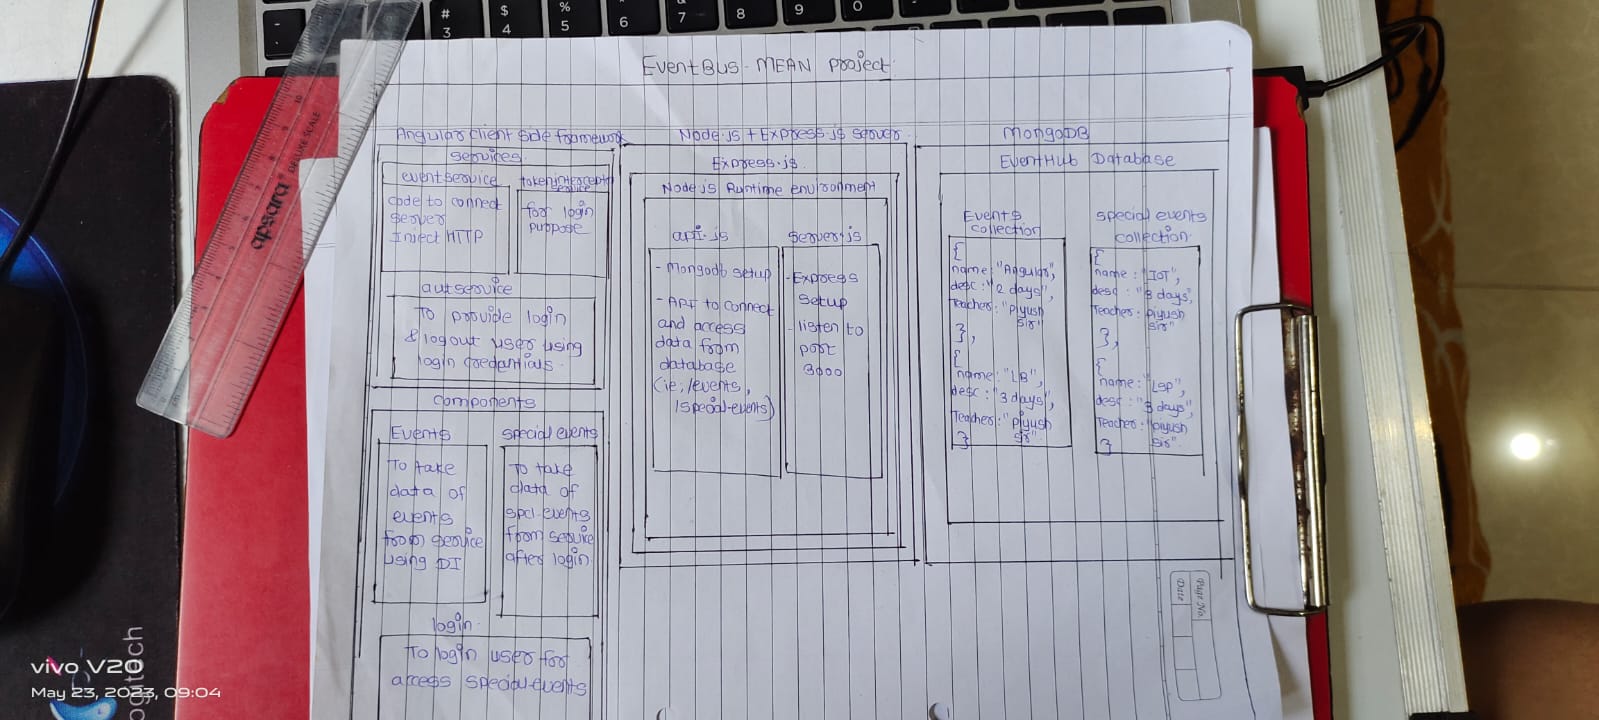 EventBus - MEAN project
Angular client side framework
services
eventservice
code to connect
server
Inject HTTP
tokenintercepto
service
for login
purpose
autservice
To provide login
& logout user using
login credentials.
components
Events
To take
data of
events
from service
using DI
special events
To take
data of
spcl-events
from service
after login.
login.
To login user for
access special-events
Node.js + Express.js server
Express.js
Node.js Runtime environment
api.js
- Mongodb setup
- API to connect
and access
data from
database
(ie; /events,
/special-events)
server.js
- Express
setup
- listen to
port
3000
MongoDB
EventHub Database
Events
collection
{
name: "Angular",
desc: "2 days",
Teacher: "Piyush
sir"
},
{
name: "LB",
desc: "3 days",
Teacher: "piyush
sir"
}
special events
collection.
{
name: "IOT",
desc: "3 days",
Teacher: piyush
sir"
},
{
name: "LSP",
desc: "3 days",
Teacher: "piyush
sir".
}
Page No.
Date
apsara DELUXE SCALE
logitech
vivo V20
May 23, 2023, 09:04
# 3
$ 4
% 5
6
& 7
8
9
0